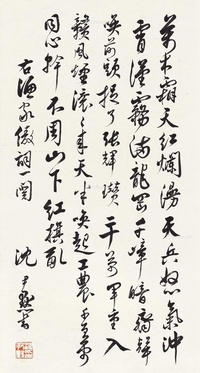 萬木霜天紅爛漫天兵怒氣沖
霄漢霧滿龍岡千嶂暗齊聲
喚前頭捉了張輝瓚二十萬軍重入
贛風煙滾滾來天半喚起工農千百萬
同心幹不周山下紅旗亂
右漁家傲詞一闋
沈尹默書